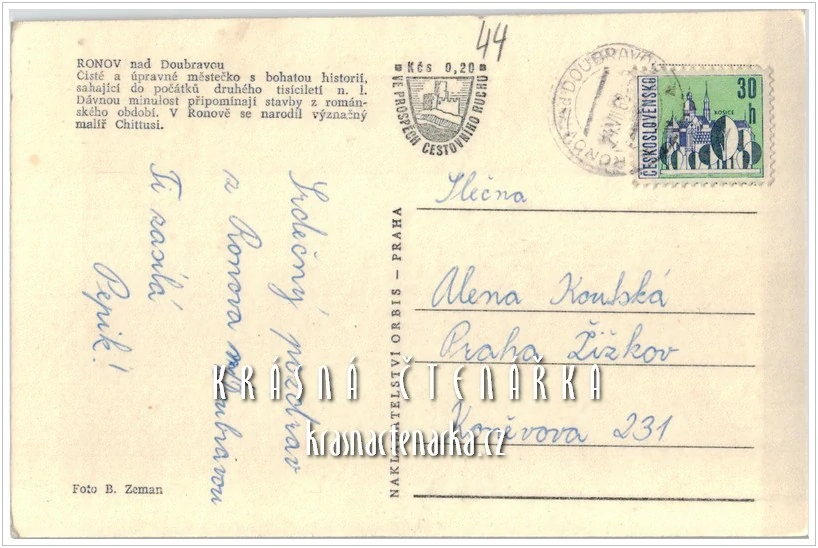 RONOV nad Doubravou
Čisté a úpravné městečko s bohatou historií,
sahající do počátků druhého tisíciletí n. l.
Dávnou minulost připomínají stavby z román-
ského období. V Ronově se narodil význačný
malíř Chittusi.
44
Kčs 0,20
VE PROSPĚCH CESTOVNÍHO RUCHU
RONOV nad DOUBRAVOU
30
h
ČESKOSLOVENSKO
KOŠICE
Srdečný pozdrav
z Ronova n/Doubravou
Ti zasílá
Pepik!
NAKLADATELSTVÍ ORBIS – PRAHA
Slečna
Alena Koutská
Praha Žižkov
Koněvova 231
KRÁSNÁ ČTENÁŘKA
krasnactenarka.cz
Foto B. Zeman